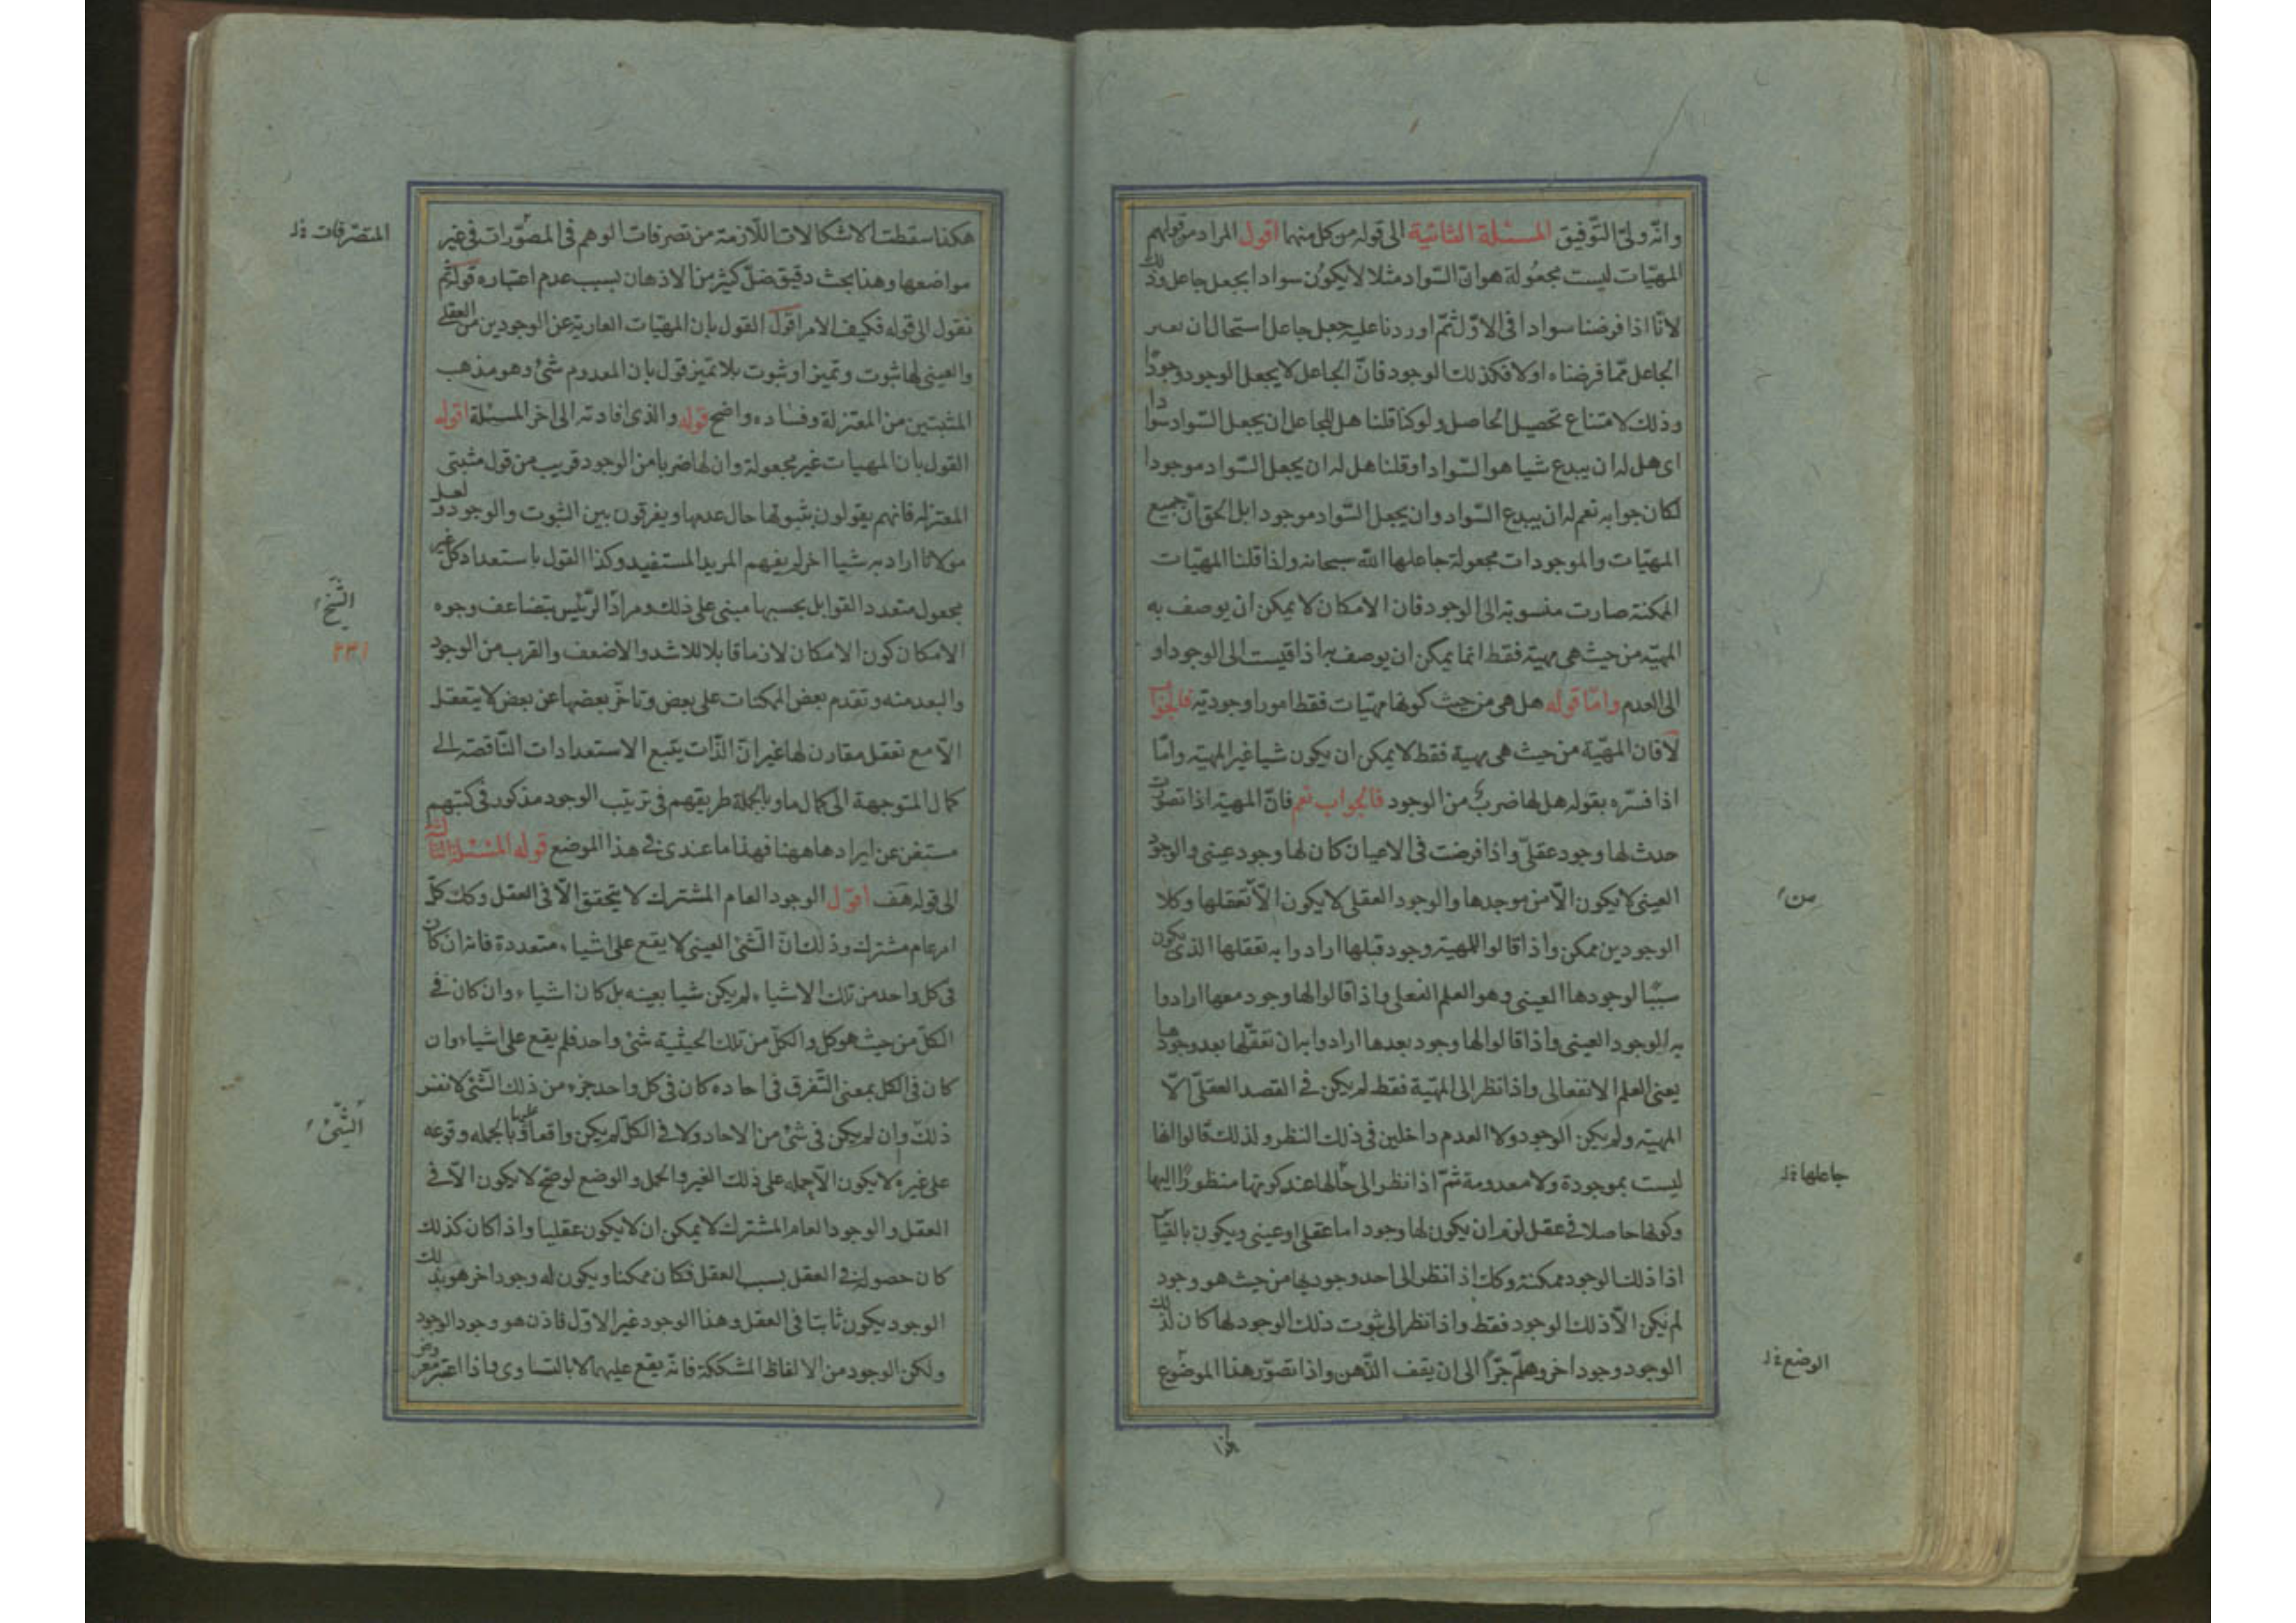 وانّه ولىّ التّوفيق المسئلة الثانية الى قوله من كل منهما اقول المراد من قولهم
المهيّات ليست مجعُولة هو انّ السّواد مثلا لا يكوُن سوادا بجعل جاعل وذلك
لانّا اذا فرضنا سوادا فى الاوّل ثمّ اوردنا عليه جعل جاعل استحال ان
الجاعل عمّا فرضناه اولا فكذلك الوجود فانّ الجاعل لا يجعل الوجود وجودًا
وذلك لامتناع تحصيل الحاصل ولو كنا قلنا هل للجاعل ان يجعل السّواد سوادا
اى هل له ان يبدع شيا هو السّواد او قلنا هل له ان يجعل السّواد موجودا
لكان جوابه نعم له ان يبدع السّواد وان يجعل السّواد موجودا بل الحق انّ جميع
المهيّات والموجودات مجعولة جاعلها الله سبحانه ولذا قلنا المهيّات
الممكنة صارت منسوبة الى الوجود فان الامكان لا يمكن ان يوصف به
المهيّة من حيث هى مهيّة فقط انما يمكن ان يوصف به اذا قيست الى الوجود او
الى العدم وامّا قوله هل هى من حيث كونها مهيّات فقط امورا وجوديّة فالجواب
لا فان المهيّة من حيث هى مهية فقط لا يمكن ان يكون شيا غير المهيّة وامّا
اذا فسّره بقوله هل لها ضرب من الوجود فالجواب نعم فانّ المهيّة اذا تصوّرت
حدث لها وجود عقلىّ واذا فرضت فى الاعيان كان لها وجود عينى والوجود
العينى لا يكون الّا من موجدها والوجود العقلى لا يكون الّا تعقلها وكلا
من
الوجودين ممكن واذا قالوا للمهية وجود قبلها ارادوا به تعقلها الذى يكون
سببًا لوجودها العينى وهو العلم الفعلى واذا قالوا لها وجود معها ارادوا
به الوجود العينى واذا قالوا لها وجود بعدها ارادوا به ان تعقّلها بعد وجودها
يعنى العلم الانفعالى واذا نظر الى المهيّة فقط لم يكن فى القصد العقلىّ الّا
المهيّة ولم يكن الوجود ولا العدم داخلين فى ذلك النظر ولذلك قالوا انها
ليست بموجودة ولا معدومة ثمّ اذا نظر الى حالها عند كونها منظورًا اليها
جاعلها خ ل
وكونها حاصلا فى عقل لزم ان يكون لها وجود اما عقلى او عينى ويكون بالقياس
اذا ذلك الوجود ممكنة وكك اذا نظر الى احد وجوديها من حيث هو وجود
لم يكن الّا ذلك الوجود فقط واذا نظر الى ثبوت ذلك الوجود لها كان لذلك
الوجود وجود اخر وهلّم جرّا الى ان يقف الذّهن واذا تصوّر هذا الموضوع
الوضع خ ل
هكذا
هكذا سقطت الاشكالات اللّازمة من تصرفات الوهم فى المصوّرات فى غير
المتصّرفات خ ل
مواضعها وهذا بحث دقيق ضلّ كثير من الاذهان بسبب عدم اعتباره قوله ثم
نقول الى قوله فكيف الامر اقول القول بان المهيّات العارية عن الوجودين العقلى
والعينى لها ثبوت وتميز او ثبوت بلا تميّز قول بان المعدوم شئ وهو مذهب
المثبتين من المعتزلة وفساده واضح قوله والذى افادته الى اخر المسئلة اقول
القول بان المهيات غير مجعولة وان لها ضربا من الوجود قريب من قول مثبتى
المعتزله فانهم يقولون بثبوتها حال عدمها ويفرقون بين الثبوت والوجود ولعل
مولانا اراد به شيا اخر لم يفهم المريد المستفيد وكذا القول باستعداد كل غير
مجعول متعدد القوابل بحسبها مبنى على ذلك ومراد الرّئيس بتضاعف وجوه
الشّيخ
الامكان كون الامكان لازما قابلا للاشد والاضعف والقرب من الوجود
۲۳۱
والبعد منه وتقدم بعض الممكنات على بعض وتاخّر بعضها عن بعض لا يتعقل
الّا مع تعقل مقارن لها غير انّ الذّات يتبع الاستعدادات النّاقصة الى
كمال المتوجهة الى كمال ما وبالجملة طريقهم فى ترتيب الوجود مذكور فى كتبهم
مستغن عن ايرادها ههنا فهذا ما عندى فى هذا الموضع قوله المسئلة الثالثة
الى قوله هف اقول الوجود العام المشترك لا يتحقق الّا فى العقل وكك كلّ
امر عام مشترك وذلك انّ الشّئ العينى لا يقع على اشياء متعددة فانه ان كان
فى كل واحد من تلك الاشياء لم يكن شيا بعينه بل كان اشياء وان كان فى
الكلّ من حيث هو كل والكلّ من تلك الحيثية شئ واحد فلم يقع على اشياء وان
كان فى الكل بمعنى التّفرق فى احاده كان فى كل واحد جزء من ذلك الشّئ لا نفس
ذلك وان لم يكن فى شئ من الاحاد ولا فى الكلّ لم يكن واقعا عليها وبالجمله وقوعه
الشّئ
على غيره لا يكون الّا بحمله على ذلك الغير والحمل والوضع لو صّح لا يكون الّا فى
العقل والوجود العام المشترك لا يمكن ان لا يكون عقليا واذا كان كذلك
كان حصوله فى العقل بسبب العقل فكان ممكنا ويكون له وجود اخر هو بذلك
الوجود يكون ثابتا فى العقل وهذا الوجود غير الاوّل فاذن هو وجود الوجود
ولكن الوجود من الالفاظ المشككة فانّه يقع عليهما لا بالتساوى واذا اعتبر